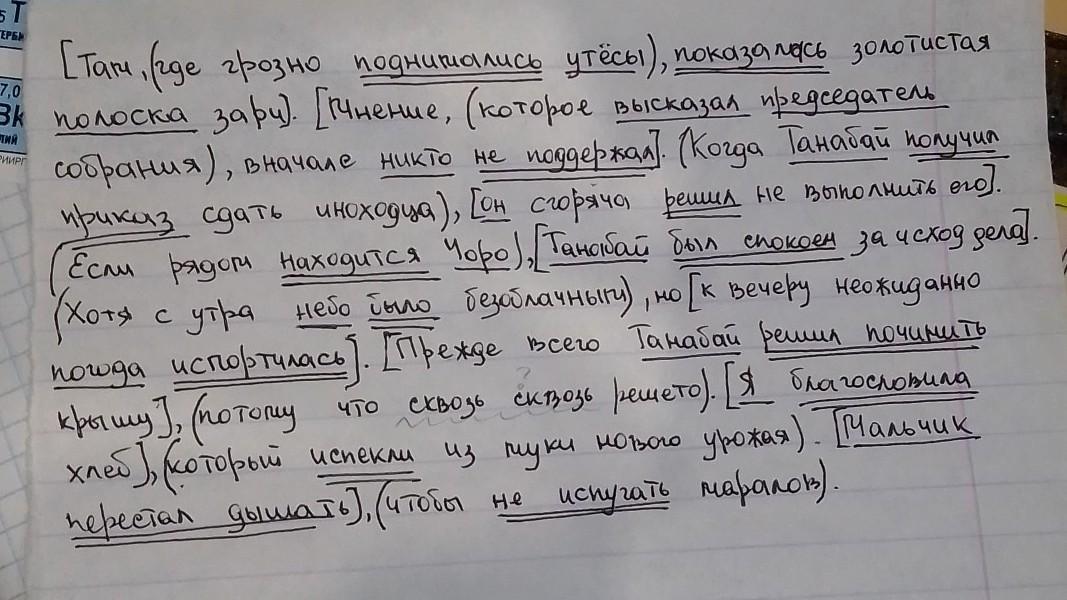 [Там, (где грозно поднимались утёсы), показалась золотистая
полоска зари]. [Мнение, (которое высказал председатель
собрания), вначале никто не поддержал]. (Когда Танабай получил
приказ сдать иноходца), [он сгоряча решил не выполнить его].
(Если рядом находится Чоро), [Танабай был спокоен за исход дела].
(Хотя с утра небо было безоблачным), но [к вечеру неожиданно
погода испортилась]. [Прежде всего Танабай решил починить
крышу], (потому что сквозь сквозь решето). [Я благословила
?
хлеб], (который испекли из муки нового урожая). [Мальчик
перестал дышать], (чтобы не испугать маралов).
5 Т
ТЕРБИ
7,0